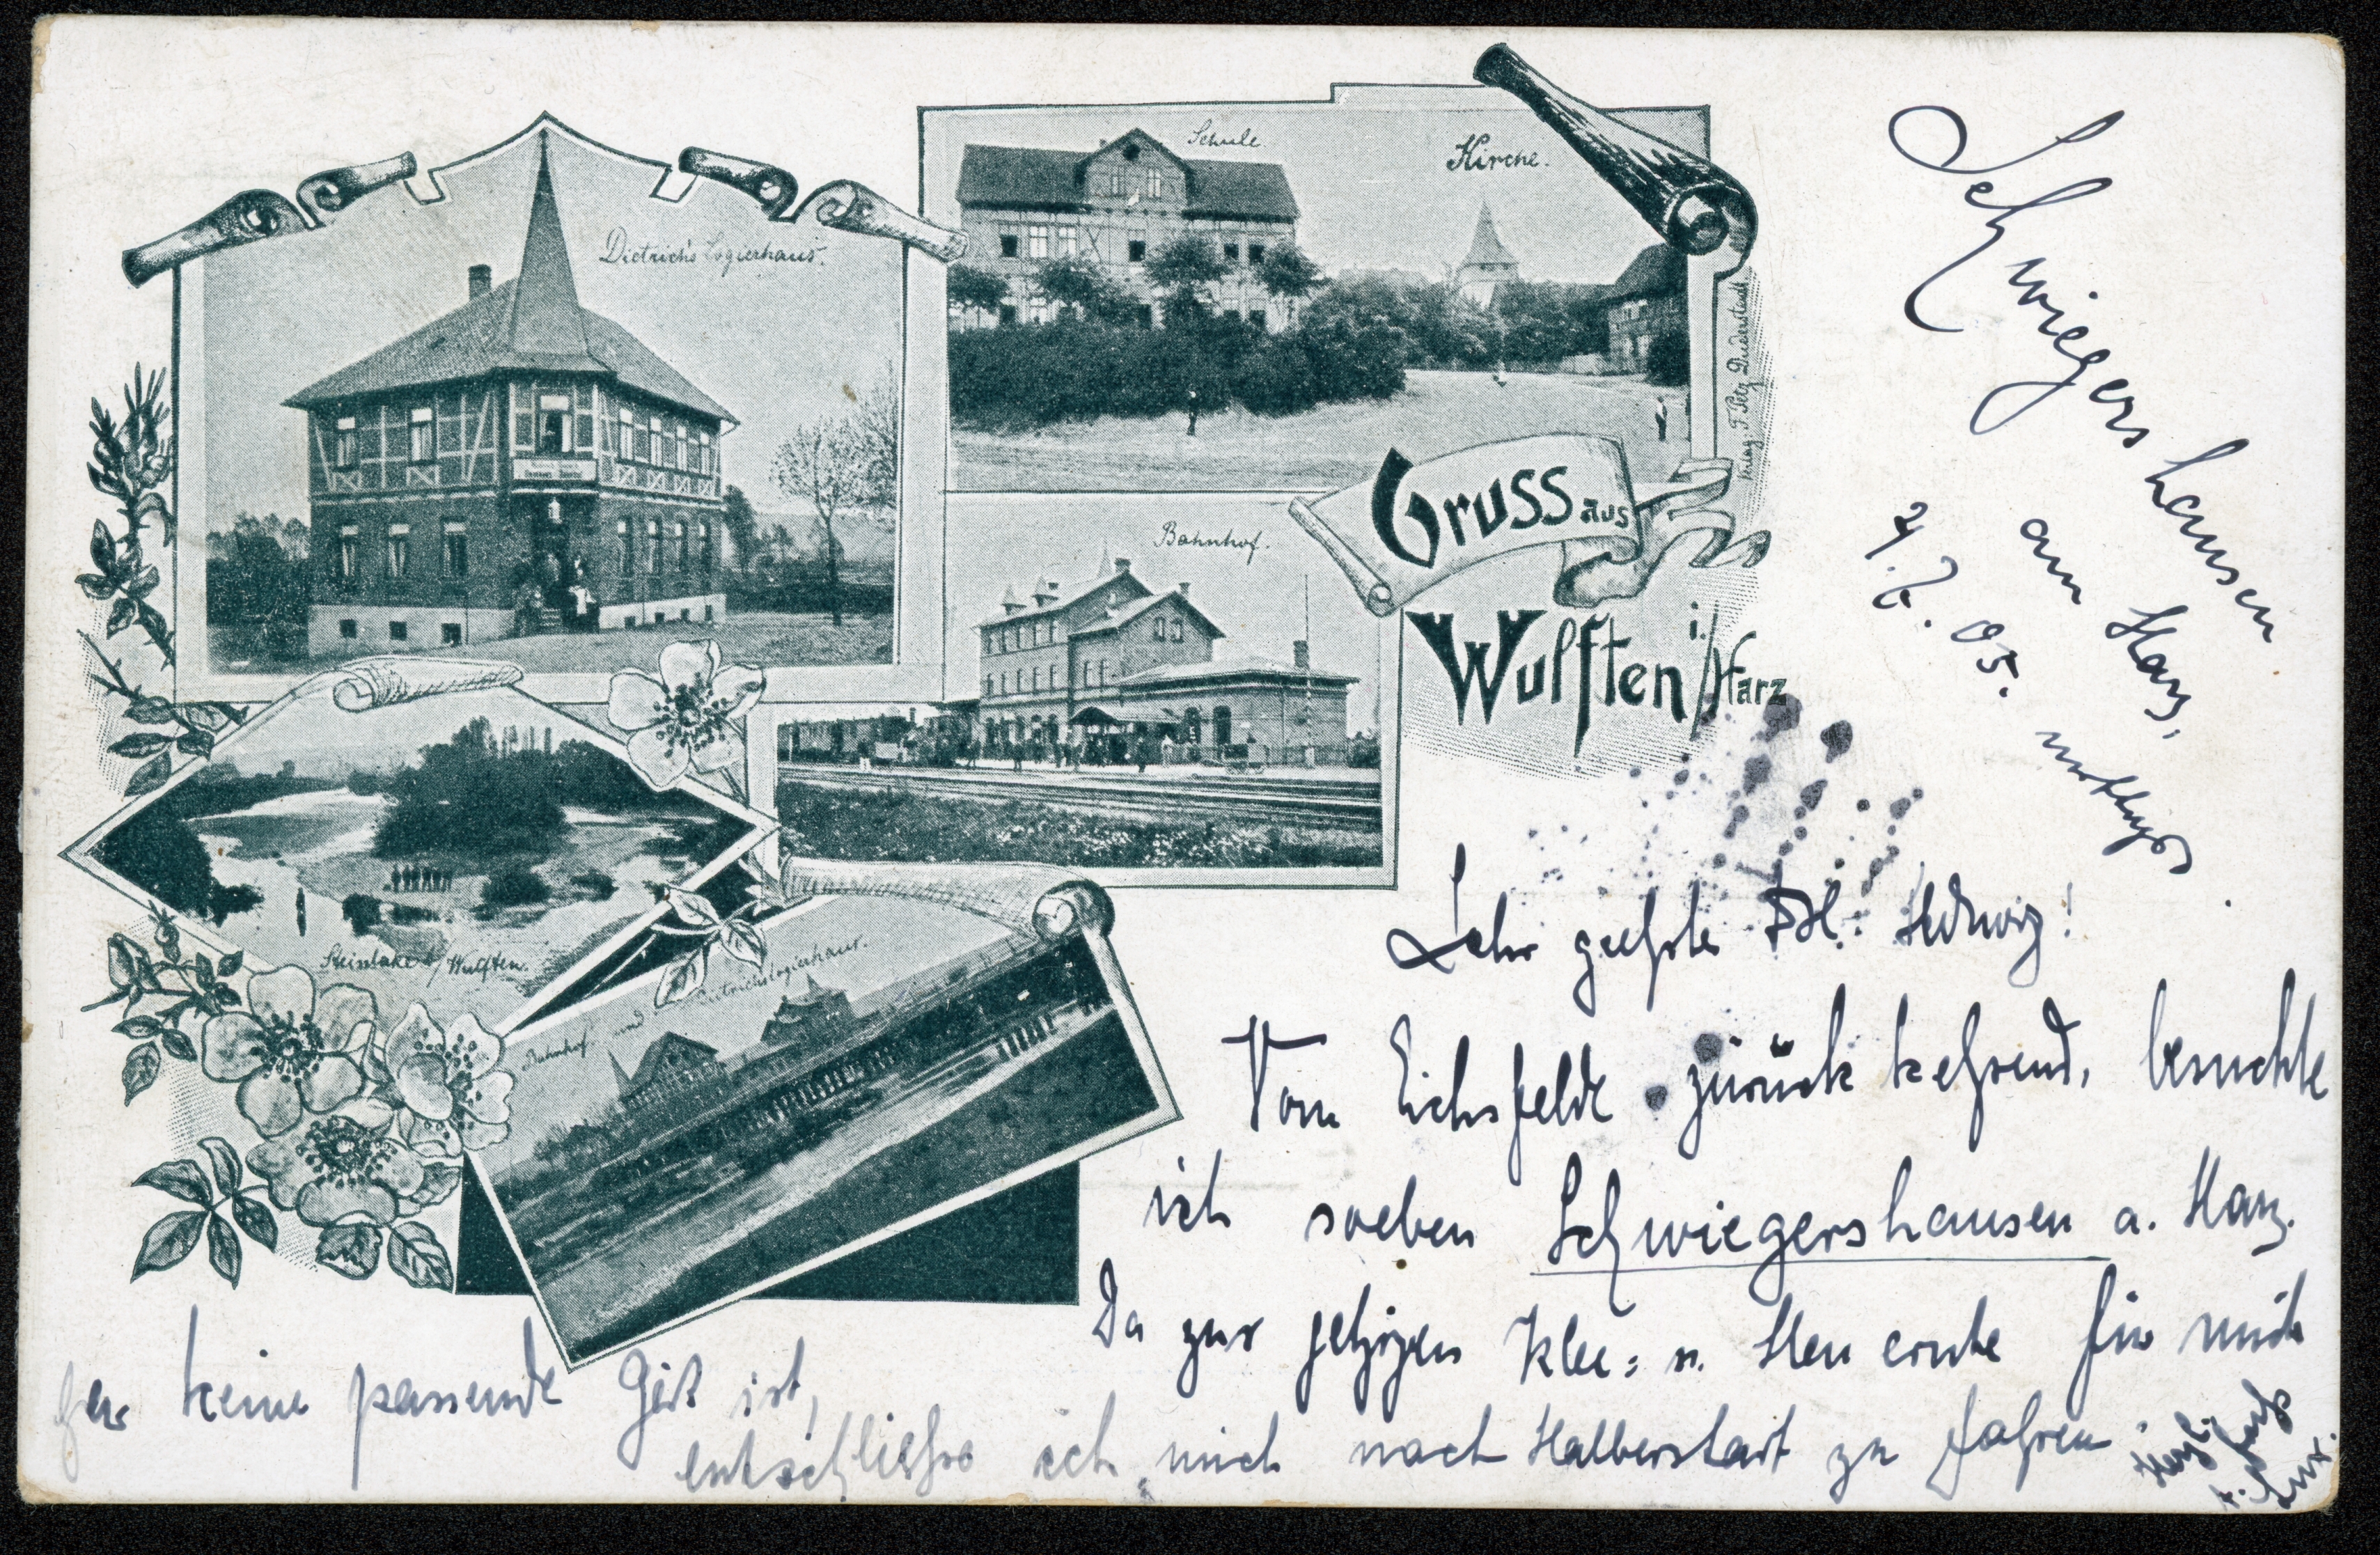 Dietrich's Logierhaus.
Schule.
Kirche.
Verlag. F. Pelz, Duderstadt.
Gruss aus
Wulften i./Harz
Bahnhof.
Steinlake b/Wulften.
Bahnhof. und Dietrichslogierhaus.
Schwiegershausen
am Harz,
4. 7. 05.
Sehr geehrte Frl. Hedwig!
Vom Eichsfelde zurück kehrend, besuchte
ich soeben Schwiegershausen a. Harz.
Da zur jetzigen Klee= u. Heu ernte für mich
hier keine passende Zeit ist,
entschließe ich mich nach Halberstadt zu fahren.
Herzl.